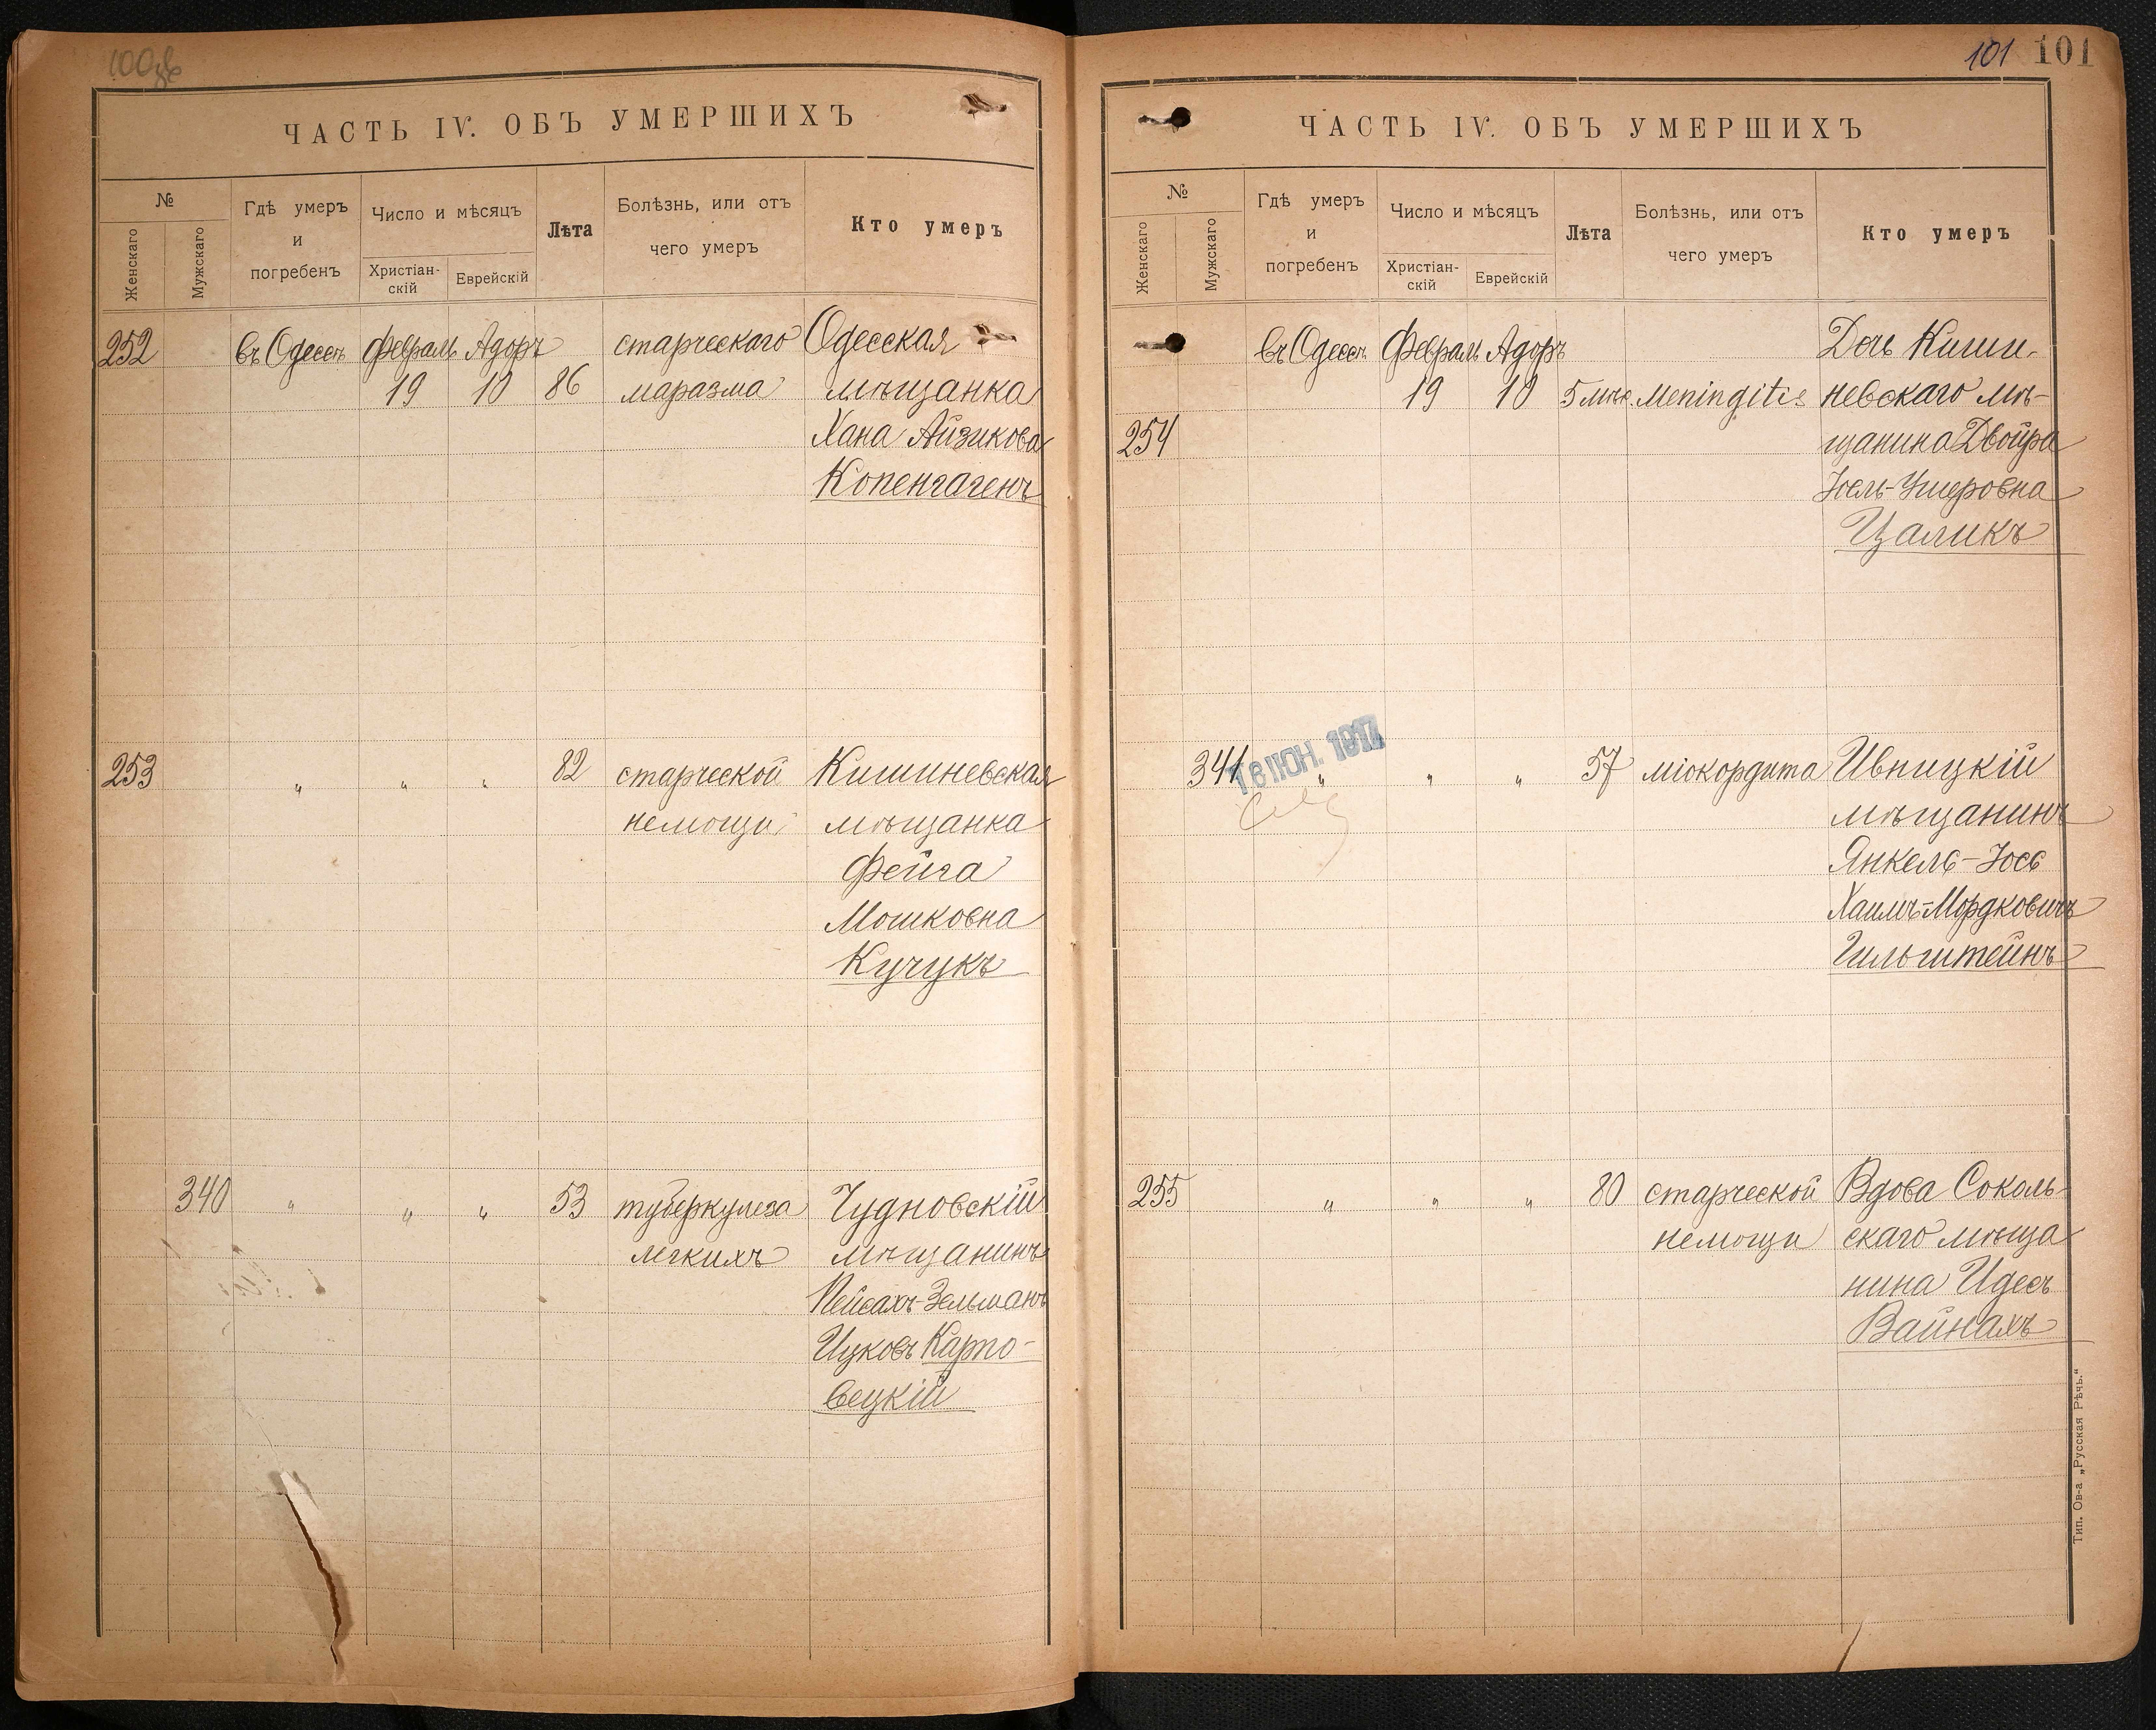 100
ЧАСТЬ IV. ОБЪ УМЕРШИХЪ
№
Женскаго
Мужскаго
Гдѣ умеръ
и
погребенъ
Число и мѣсяцъ
Христіан-
скій
Еврейскій
Лѣта
Болѣзнь, или отъ
чего умеръ
Кто умеръ
252 въ Одессѣ Февраль Адоръ старческаго Одесская
19 10 86 маразма мѣщанка
Хана Айзикова
Копенгагенъ
253 " " " 82 старческой Кишиневская
немощи мѣщанка
Фейга
Мошковна
Кучукъ
340 " " " 53 туберкулеза Чудновскій
легкихъ мѣщанинъ
Пейсахъ-Зельманъ
Ицковъ Карпо-
вецкій
101 101
ЧАСТЬ IV. ОБЪ УМЕРШИХЪ
№
Женскаго
Мужскаго
Гдѣ умеръ
и
погребенъ
Число и мѣсяцъ
Христіан-
скій
Еврейскій
Лѣта
Болѣзнь, или отъ
чего умеръ
Кто умеръ
въ Одессѣ Февраль Адоръ Дочь Киши-
19 10 5 мѣс. Meningitis невскаго мѣ-
254 щанина Двойра
Іоель-Ушеровна
Цаликъ
16 ІЮН. 1914
341 " " " 57 міокордита Ивницкій
мѣщанинъ
Янкель-Іось
Хаимъ-Мордковичъ
Гильштейнъ
255 " " " 80 старческой Вдова Соколь-
немощи скаго мѣща
нина Идесъ
Вайнахъ
Тип. Ов-а „Русская Рѣчь.“